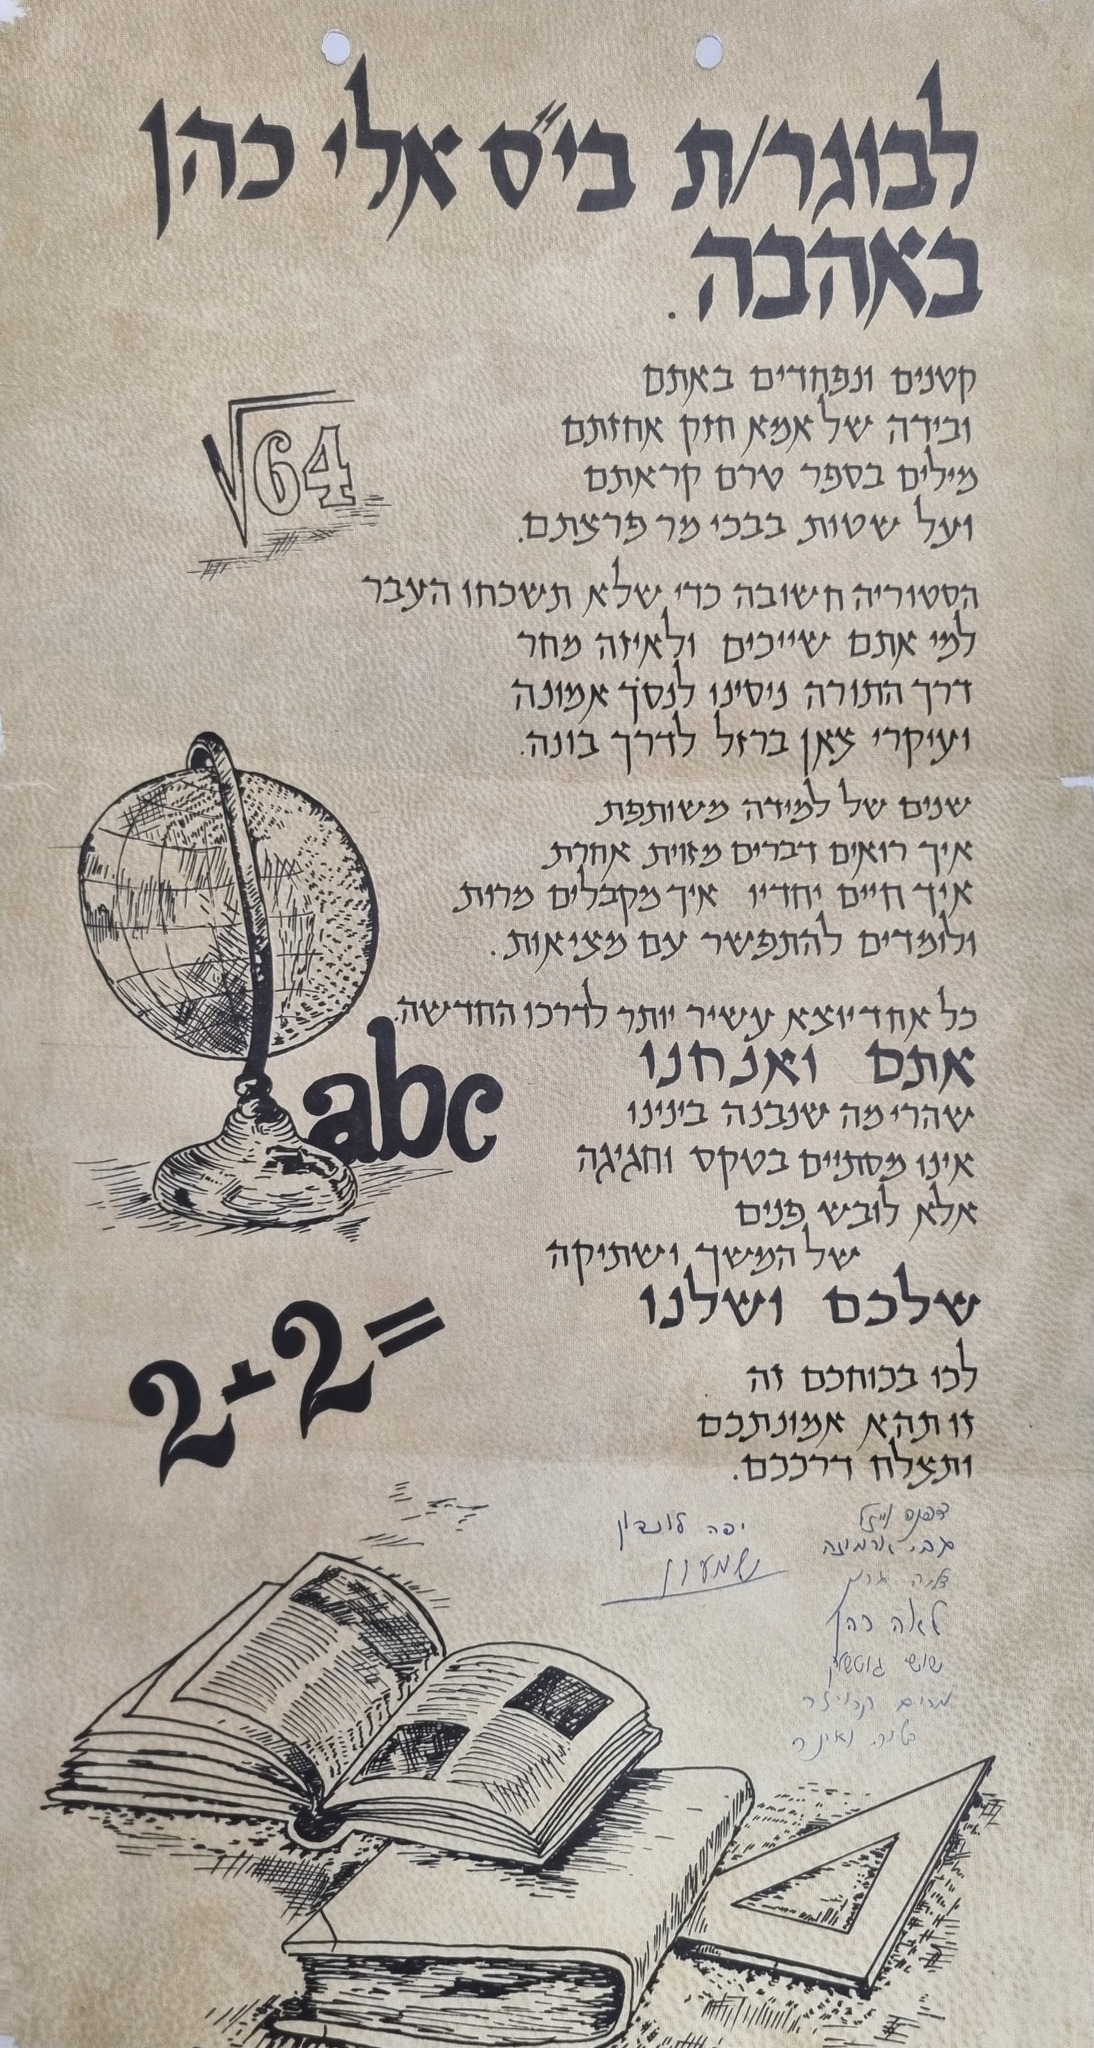 לבוגר/ת בי"ס אלי כהן
באהבה.
קטנים ונפחדים באתם
ובידה של אמא חזק אחזתם
מילים בספר טרם קראתם
ועל שטות בבכי מר פרצתם.
√64
הסטוריה חשובה כדי שלא תשכחו העבר
למי אתם שייכים ולאיזה מחר
דרך התורה ניסינו לנסך אמונה
ועיקרי צאן ברזל לדרך בונה.
שנים של למידה משותפת
איך רואים דברים מזוית אחרת
איך חיים יחדיו איך מקבלים מרות
ולומדים להתפשר עם מציאות.
כל אחד יוצא עשיר יותר לדרכו החדשה.
אתם ואנחנו
שהרי מה שנבנה בינינו
אינו מסתיים בטקס וחגיגה
אלא לובש פנים
של המשך ושתיקה
שלכם ושלנו
abc
2+2=
לכו בכוחכם זה
זו תהא אמונתכם
ותצלח דרככם.
דפנה
לאה כהן
שוש
מרים
יפה לונדון
שמעון